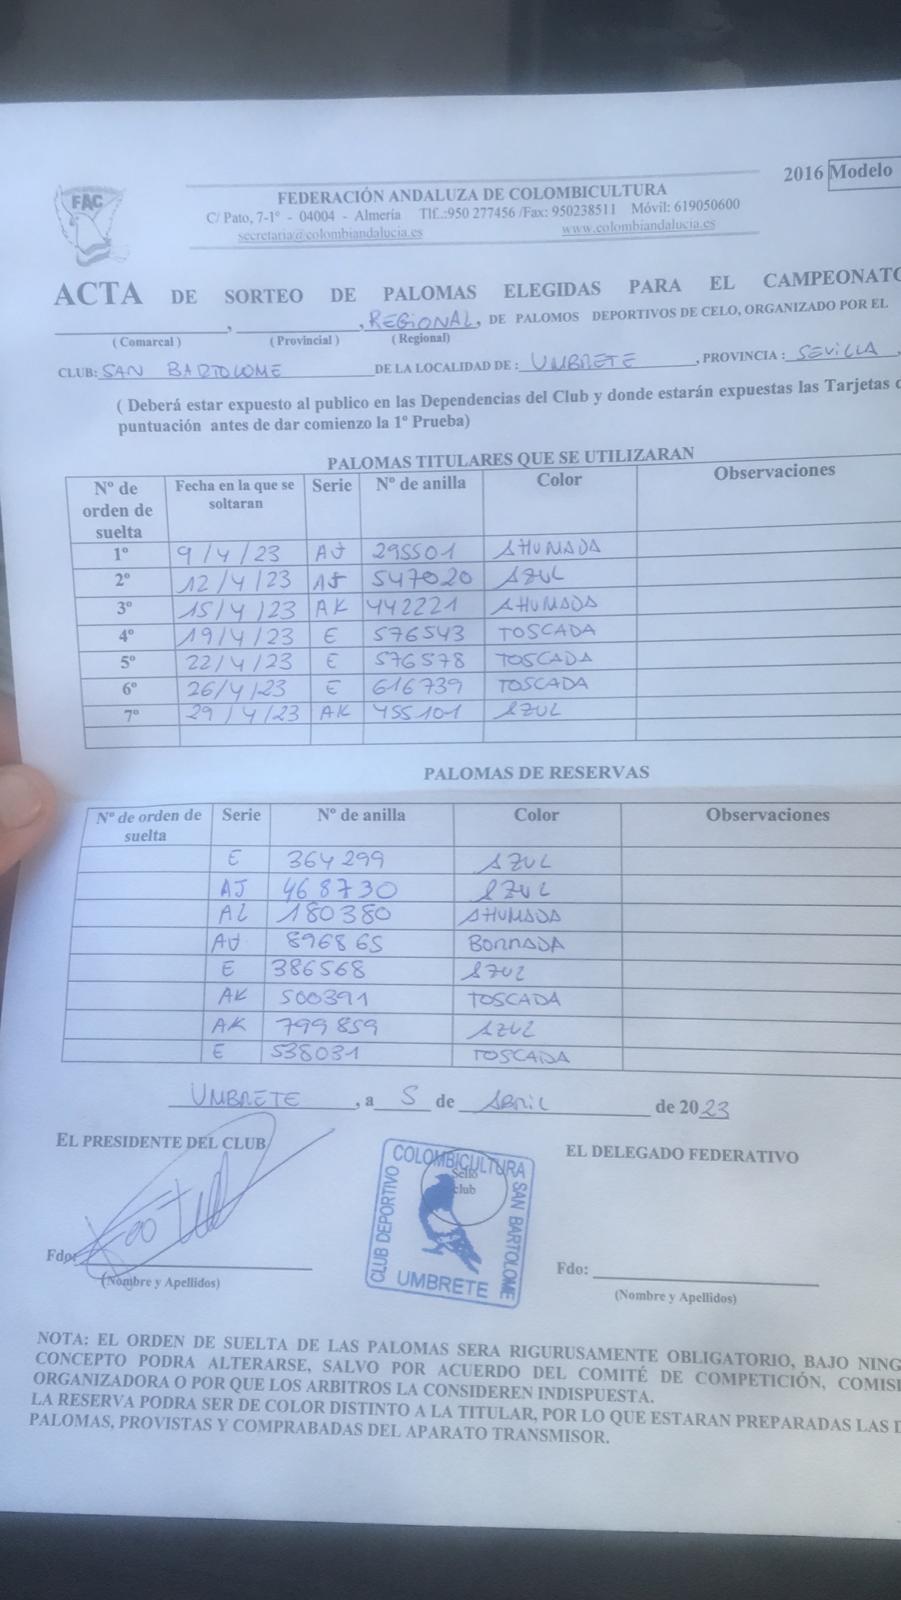 2016 Modelo
FAC
FEDERACIÓN ANDALUZA DE COLOMBICULTURA
C/ Pato, 7-1º - 04004 - Almería Tlf.:950 277456 /Fax: 950238511 Móvil: 619050600
secretaria@colombiandalucia.es www.colombiandalucia.es
ACTA DE SORTEO DE PALOMAS ELEGIDAS PARA EL CAMPEONATO
, , REGIONAL, DE PALOMOS DEPORTIVOS DE CELO, ORGANIZADO POR EL
( Comarcal ) ( Provincial ) ( Regional)
CLUB: SAN BARTOLOME DE LA LOCALIDAD DE : UMBRETE , PROVINCIA : SEVILLA
( Deberá estar expuesto al publico en las Dependencias del Club y donde estarán expuestas las Tarjetas
puntuación antes de dar comienzo la 1º Prueba)
PALOMAS TITULARES QUE SE UTILIZARAN
Nº de orden de suelta Fecha en la que se soltaran Serie Nº de anilla Color Observaciones
1º 9/4/23 AJ 295501 AHUMADA
2º 12/4/23 AJ 547020 AZUL
3º 15/4/23 AK 442221 AHUMADA
4º 19/4/23 E 576543 TOSCADA
5º 22/4/23 E 576578 TOSCADA
6º 26/4/23 E 616739 TOSCADA
7º 29/4/23 AK 455101 AZUL
PALOMAS DE RESERVAS
Nº de orden de suelta Serie Nº de anilla Color Observaciones
E 364299 AZUL
AJ 468730 AZUL
AL 180380 AHUMADA
AJ 896865 BORRADA
E 386568 AZUL
AK 500391 TOSCADA
AK 799859 AZUL
E 538031 TOSCADA
UMBRETE , a 5 de Abril de 2023
EL PRESIDENTE DEL CLUB
EL DELEGADO FEDERATIVO
COLOMBICULTURA
Sello club
CLUB DEPORTIVO
SAN BARTOLOME
UMBRETE
Fdo:
(Nombre y Apellidos)
Fdo:
(Nombre y Apellidos)
NOTA: EL ORDEN DE SUELTA DE LAS PALOMAS SERA RIGURUSAMENTE OBLIGATORIO, BAJO NING
CONCEPTO PODRA ALTERARSE, SALVO POR ACUERDO DEL COMITÉ DE COMPETICIÓN, COMIS
ORGANIZADORA O POR QUE LOS ARBITROS LA CONSIDEREN INDISPUESTA.
LA RESERVA PODRA SER DE COLOR DISTINTO A LA TITULAR, POR LO QUE ESTARAN PREPARADAS LAS
PALOMAS, PROVISTAS Y COMPRABADAS DEL APARATO TRANSMISOR.